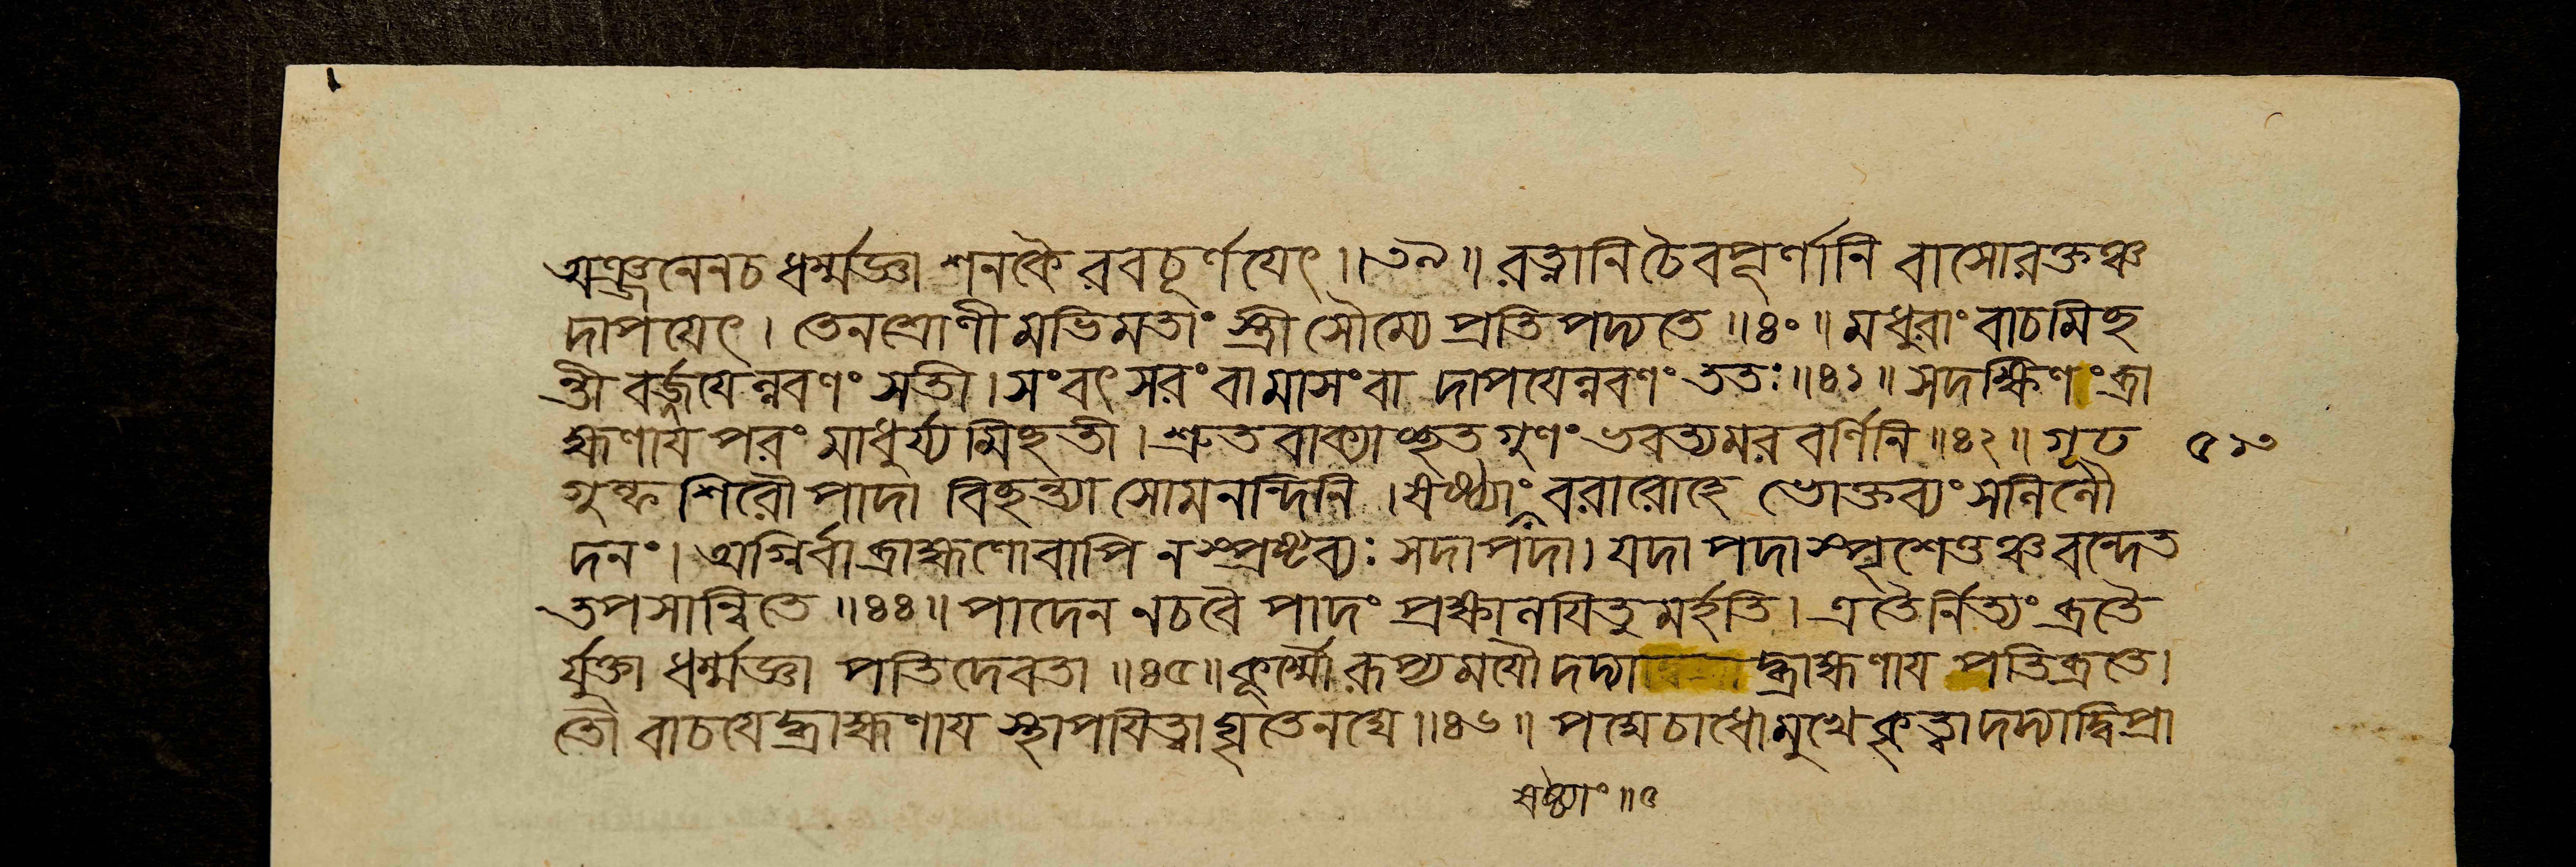 অঞ্জনেনচ ধর্ম্মজ্ঞা শনকৈ রবচূর্ণয়েৎ ॥৩৯॥ রত্নানিচৈবপূর্ণানি বাসোরক্তঞ্চ
দাপয়েৎ। তেনশ্রোণীমভিমতাং স্ত্রী সৌম্যে প্রতিপদ্যতে ॥৪০॥ মধুরাং বাচমিছ
ন্তী বর্জ্জয়েল্লবণং সতী। সংবৎসরং বামাসংবা দাপয়েল্লবণং ততঃ ॥৪১॥ সদক্ষিণং ব্রা
হ্মণায় পরং মাধুর্য্যমিছতী। শ্রুতবাক্যাচ্ছতগুণং ভবত্যমর বর্ণিনি ॥৪২॥ গূঢ ৫১৩
গুল্ফ শিরৌ পাদা বিছন্ত্যা সোমনন্দিনি। ষষ্ঠ্যাং বরারোহে ভোক্তব্যং সলিলৌ
দনং। অগ্নির্বা ব্রাহ্মণোবাপি নস্প্রষ্টব্যঃ সদাপদা। যদা পদাস্পৃশেত্তঞ্চ বন্দেত
তপসান্বিতে ॥৪৪॥ পাদেন নচবৈ পাদং প্রক্ষালয়িতুমর্হতি। এতৈর্নিত্যং ব্রতৈ
র্যুক্তা ধর্ম্মজ্ঞা পতিদেবতা ॥৪৫॥ কূর্ম্মৌ রূপ্যময়ৌ দদ্যাদ্ব্রাহ্মণায় পতিব্রতে।
তৌ বাচয়েদ্ব্রাহ্মণায় স্থাপয়িত্বা ঘৃতেনঘে ॥৪৬॥ পদ্মেচাধোমুখে কৃত্বা দদ্যাদ্বিপ্রা
ষষ্ঠ্যাং ॥৫